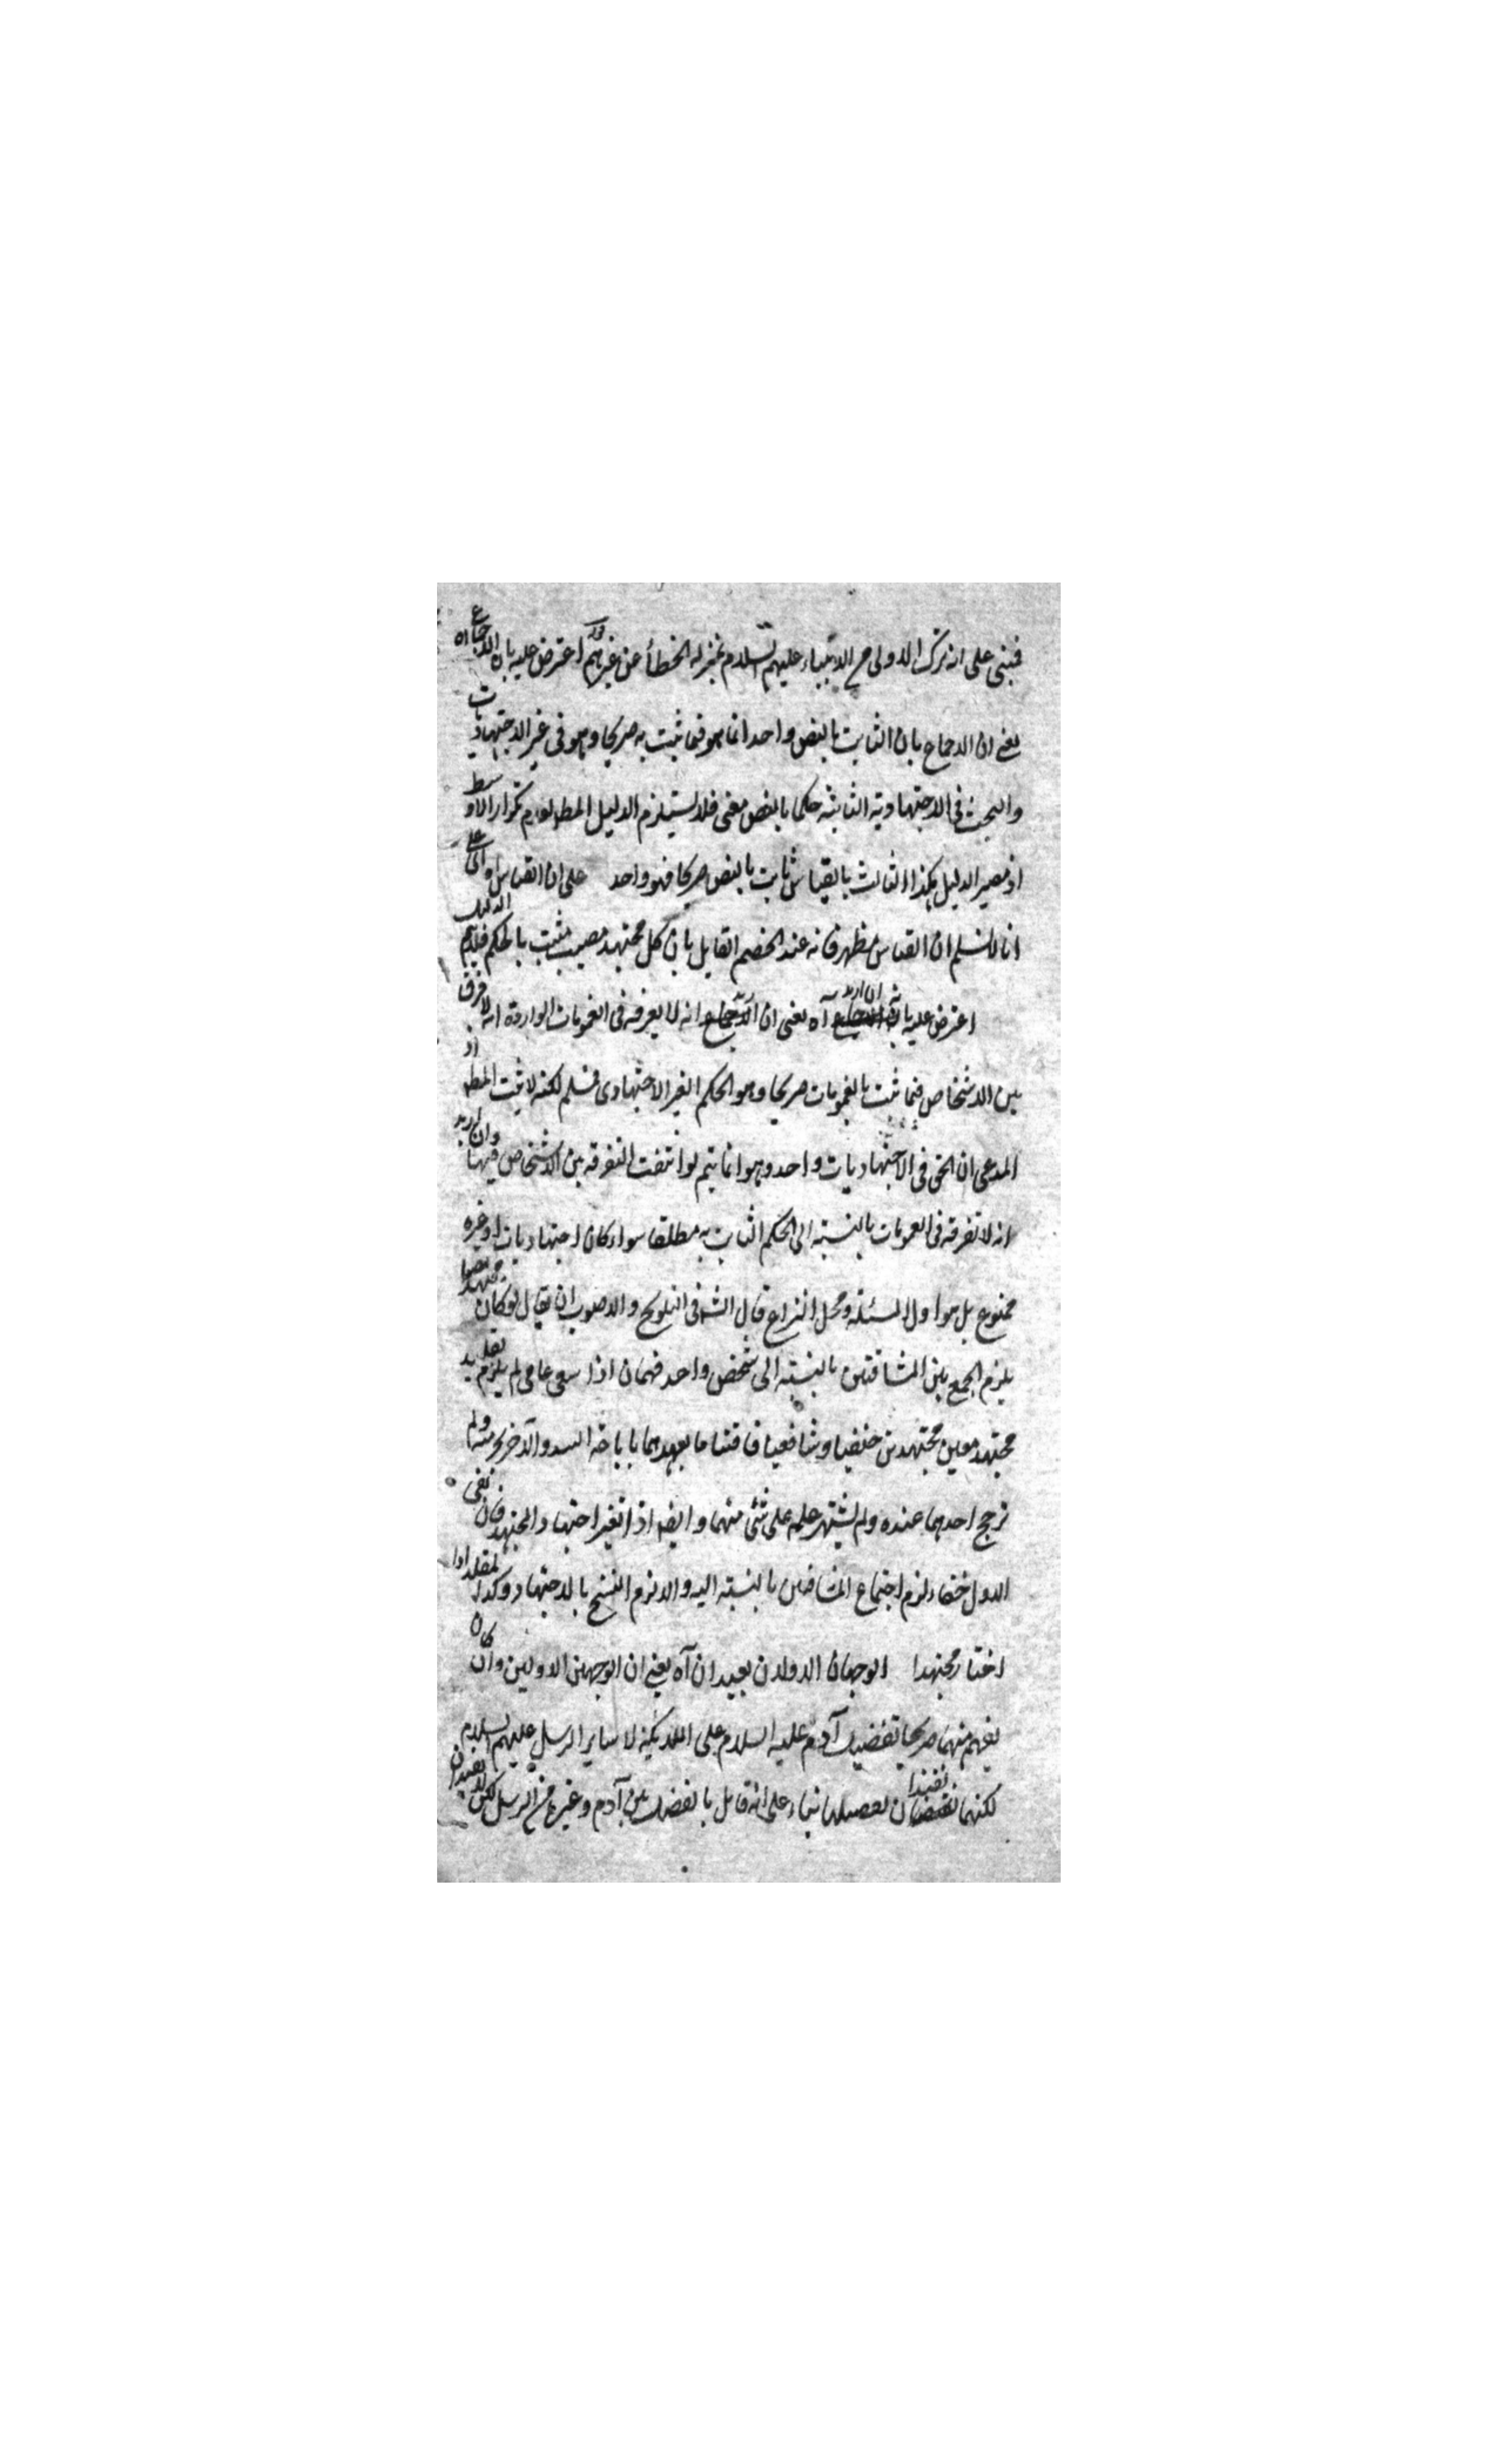 فبنى على ان ترك الاولى من الانبياء عليهم السلام بمنزلة الخطأ عن غيرهم اعترض عليه بان الاجماع اه
يعنى ان الاجماع بان الثابت بالنص واحد انما هو فيما ثبت به صريحا وهو فى غير الاجتهاديات
والبحث فى الاجتهادية الثابتة حكما بالنص معنى فلا يستلزم الدليل المط لعدم تكرار الاوسط
اذ مصير الدليل هكذا الثالث بالقياس ثابت بالنص صريحا فهو واحد على ان القياس اه اى على
انا لا نسلم ان القياس مظهر فانه عند الخصم القايل بان كل مجتهد مصيب مثبت بالحكم فلا يتم الدليل
اعترض عليه بانه ان اريد آه يعنى ان اريد انه لا يفرق فى العمومات الواردة انه لا فرق
بين الاشخاص فيما ثبت بالعمومات صريحا وهو الحكم الغير الاجتهادى فسلم لكنه لا يثبت المط اذ
المدعى ان الحق فى الاجتهاديات واحد وهو انما يتم لو انتفت التفرقة بين الاشخاص فيها وان اريد
انه لا تفرقة فى العمومات بالنسبة الى الحكم الثابت به مطلقا سواء كان اجتهاديات او غيره
ممنوع بل هو اول المسئلة ومحل النزاع قال الش فى التلويح والاصوب ان يقال لو كان مجتهد مصيبا
يلزم الجمع بين المتنافيين بالنسبة الى شخص واحد فيما اذا عامى لم يلزم تقليد
مجتهد معين مجتهدين حنفيا وشافعيا فافتاهما باباحة والآخر بحرمته ولم
ترجح احدهما عنده ولم يشتهر علمه على شئ منهما وايضا اذا تغير اجتهاد المجتهد فان بقى
الاول حقا لزم اجتماع المتنافيين بالنسبة اليه والا لزم النسخ بالاجتهاد وكذا المقلد اذا
اختار مجتهدا الوجهان الاولان بعيدان آه يعنى ان الوجهين الاولين وان كان
يفهم منهما صريحا تفضيل آدم عليه السلام على الملائكة لا ساير الرسل عليهم السلام
لكنهما تفضيلها بناء على انه قايل بالفضل بين آدم وغيره من الرسل لكن